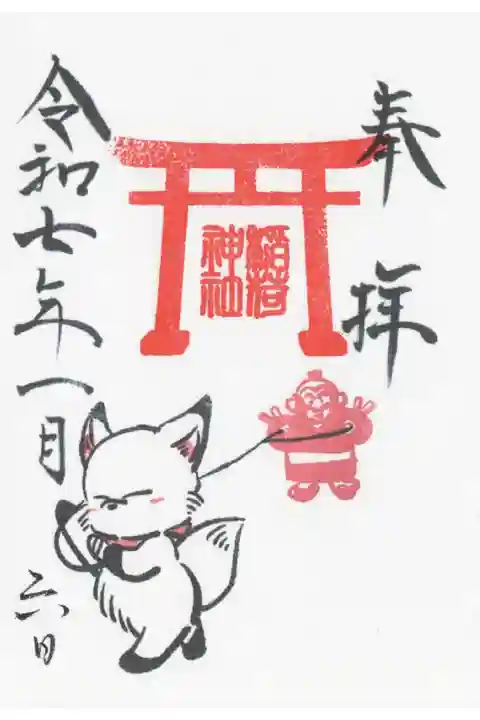 奉拝
稲荷
神社
令和七年一月
六日